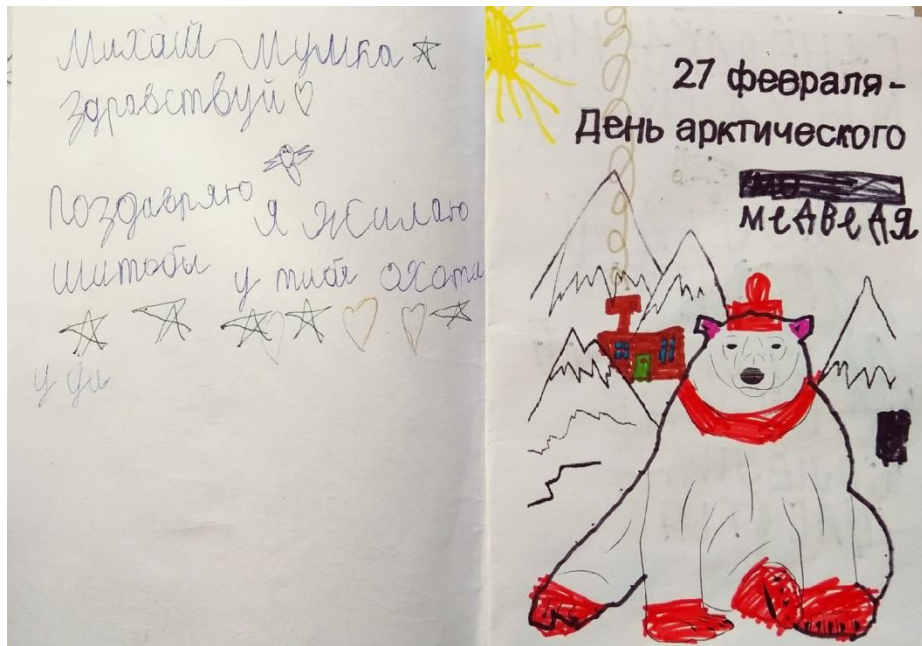 Михаил Мумка
Здравствуй
Поздавряю я жилаю
шитобы у тибя охота
у да
27 февраля-
День арктического
меДВеДЯ